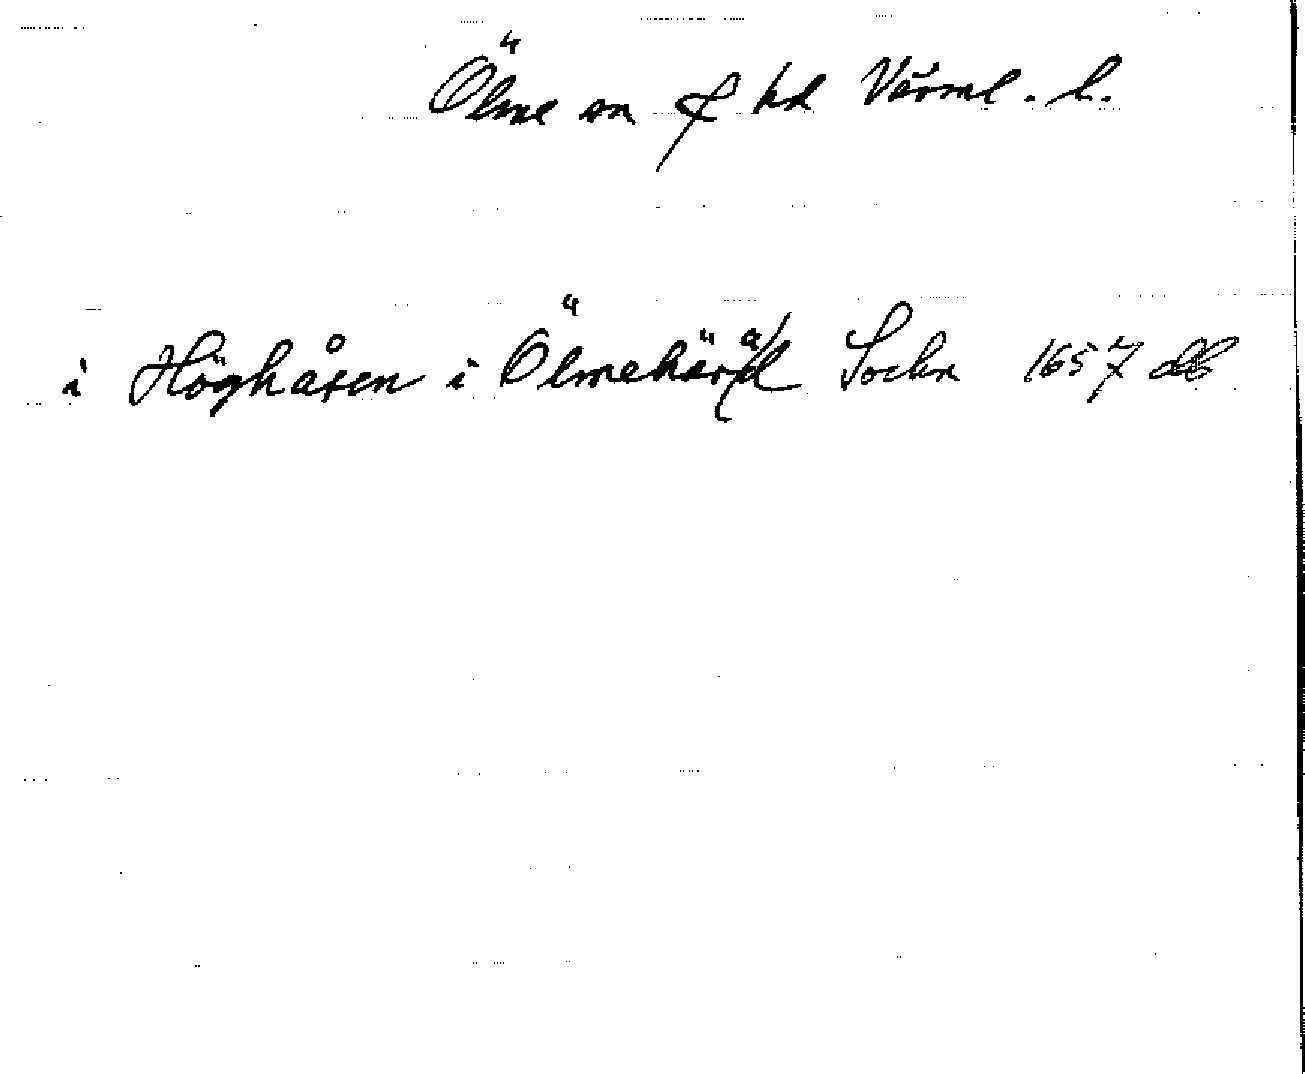 Ölme sn f hd Värml. l.
i Höghåsen i Ölmehäräd Sockn 1657 db